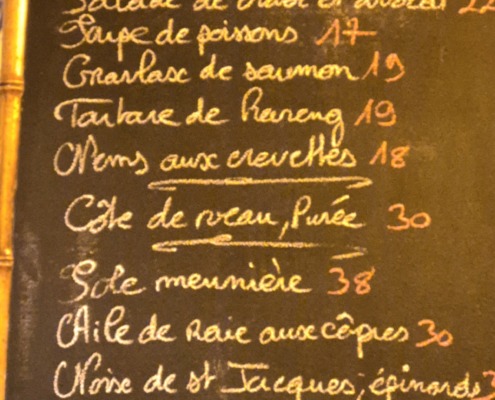 Salade de crabe et avocat 22
Soupe de poissons 17
Gravlax de saumon 19
Tartare de hareng 19
Nems aux crevettes 18
Côte de veau, Purée 30
Sole meunière 38
Aile de Raie aux câpres 30
Noix de st Jacques, épinards